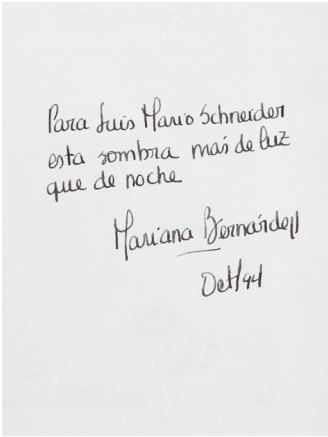 Para Luis Mario Schneider
esta sombra más de luz
que de noche
Mariana Bernárdez
Oct/94